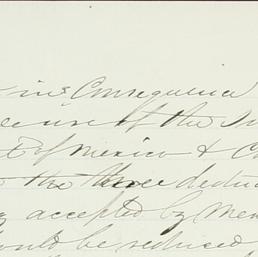 in Consequence
use of the
of Mexico & C
the three deduc
accepted by Mex
ould be reduced